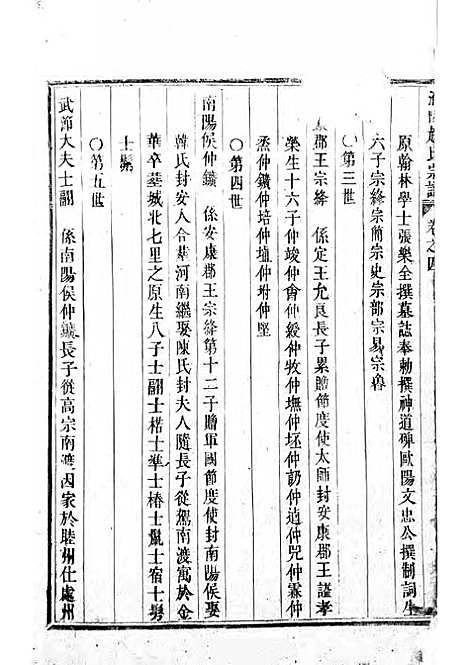 趙氏宗譜 卷之四
原翰林學士張樂全撰墓誌奉勅撰神道碑歐陽文忠公撰制詞生
六子宗絳宗简宗史宗部宗易宗魯
○第三世
郡王宗絳 係定王允良長子累贈節度使太師封安康郡王謚孝
榮生十六子仲竣仲會仲綬仲牧仲撫仲坯仲防仲逍仲咒仲霖仲
烝仲鑛仲培仲壚仲坿仲堅
○第四世
南陽侯仲鑛 係安康郡王宗絳第十二子贈軍國節度使封南陽侯娶
韓氏封安人合葬河南繼娶陳氏封夫人隨長子從駕南渡寓於金
華卒墓城北七里之原生八子士翮士楉士準士椿士胤士宿士髣
士髴
○第五世
武節大夫士翮 係南陽侯仲鑛長子從高宗南渡因家於睦州仕處州